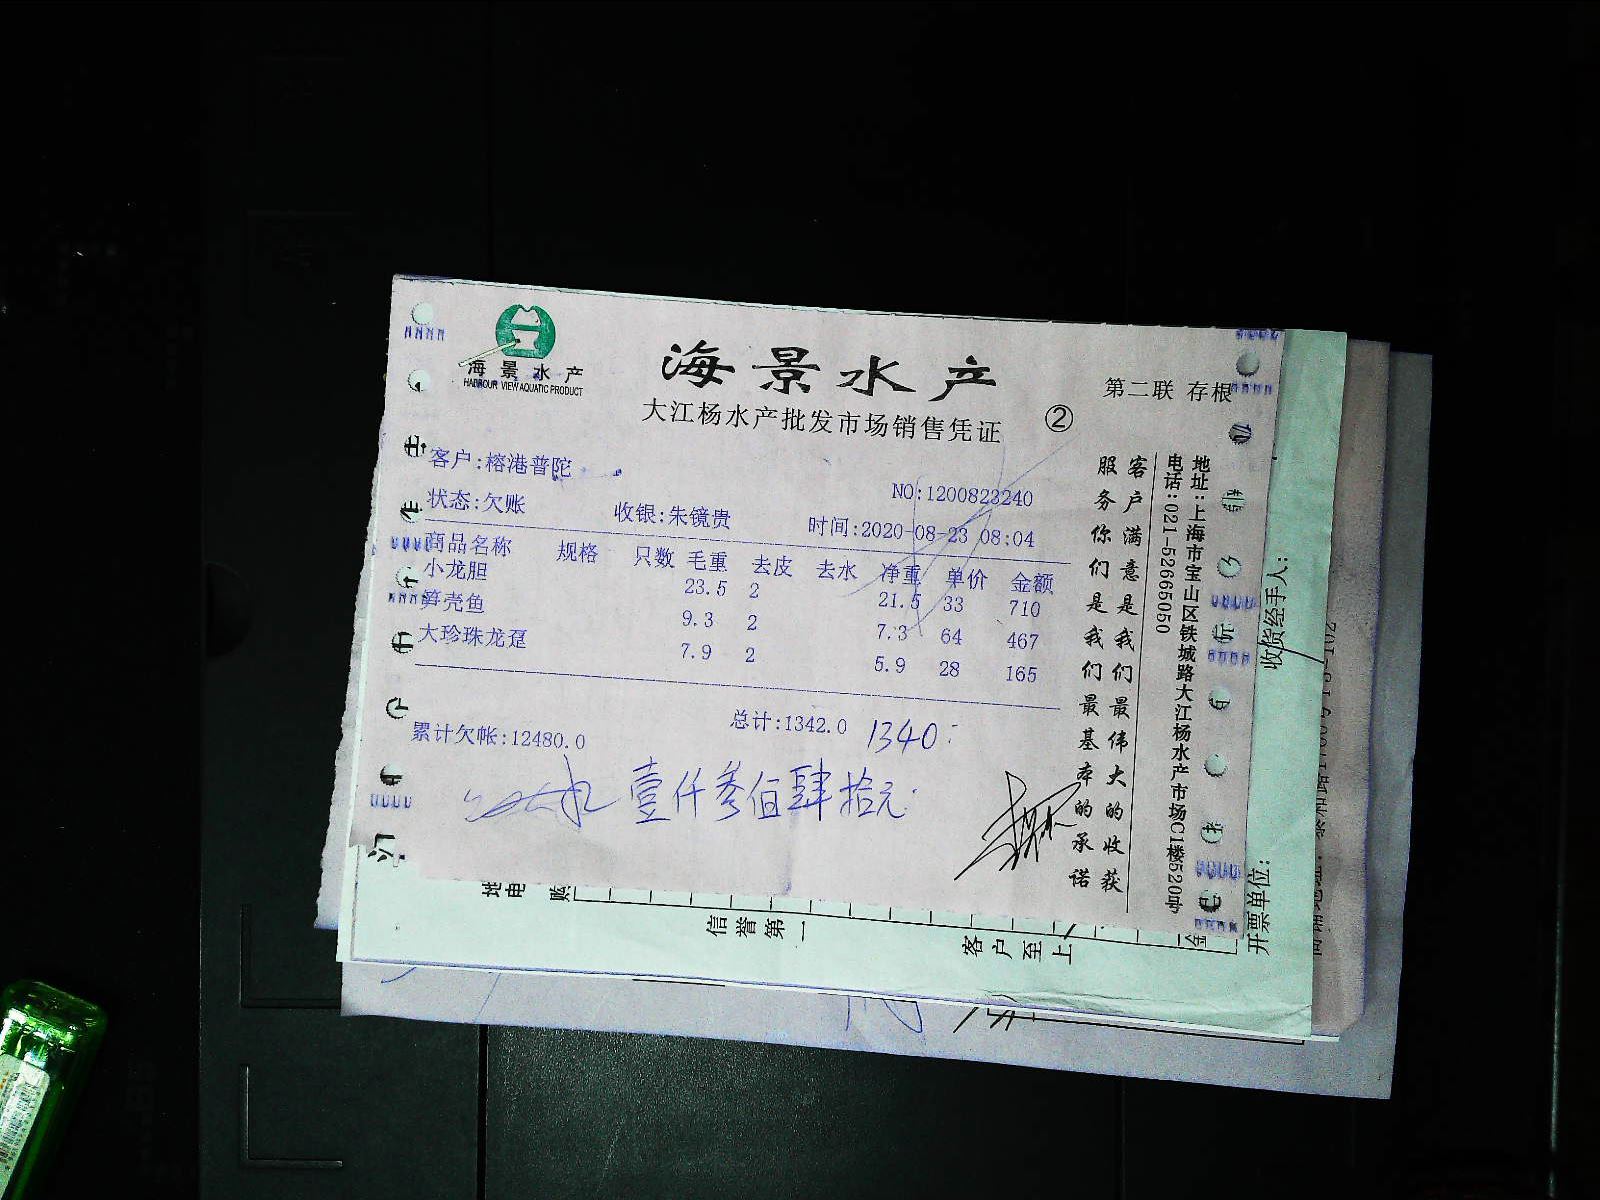 海景水产
HARBOUR VIEW AQUATIC PRODUCT
海景水产
大江杨水产批发市场销售凭证
②
第二联 存根
客户:榕港普陀
NO:1200823240
状态:欠账 收银:朱镜贵 时间:2020-08-23 08:04
商品名称 规格 只数 毛重 去皮 去水 净重 单价 金额
小龙胆 23.5 2 21.5 33 710
笋壳鱼 9.3 2 7.3 64 467
大珍珠龙趸 7.9 2 5.9 28 165
总计:1342.0 1340
累计欠帐:12480.0
壹仟叁佰肆拾元
客户满意是我们最伟大的收获
服务你们是我们最基本的承诺
地址:上海市宝山区铁城路大江杨水产市场C1楼520号
电话:021-52665050
收货经手人:
开票单位:
地
电
购
信誉第一
客户至上
金